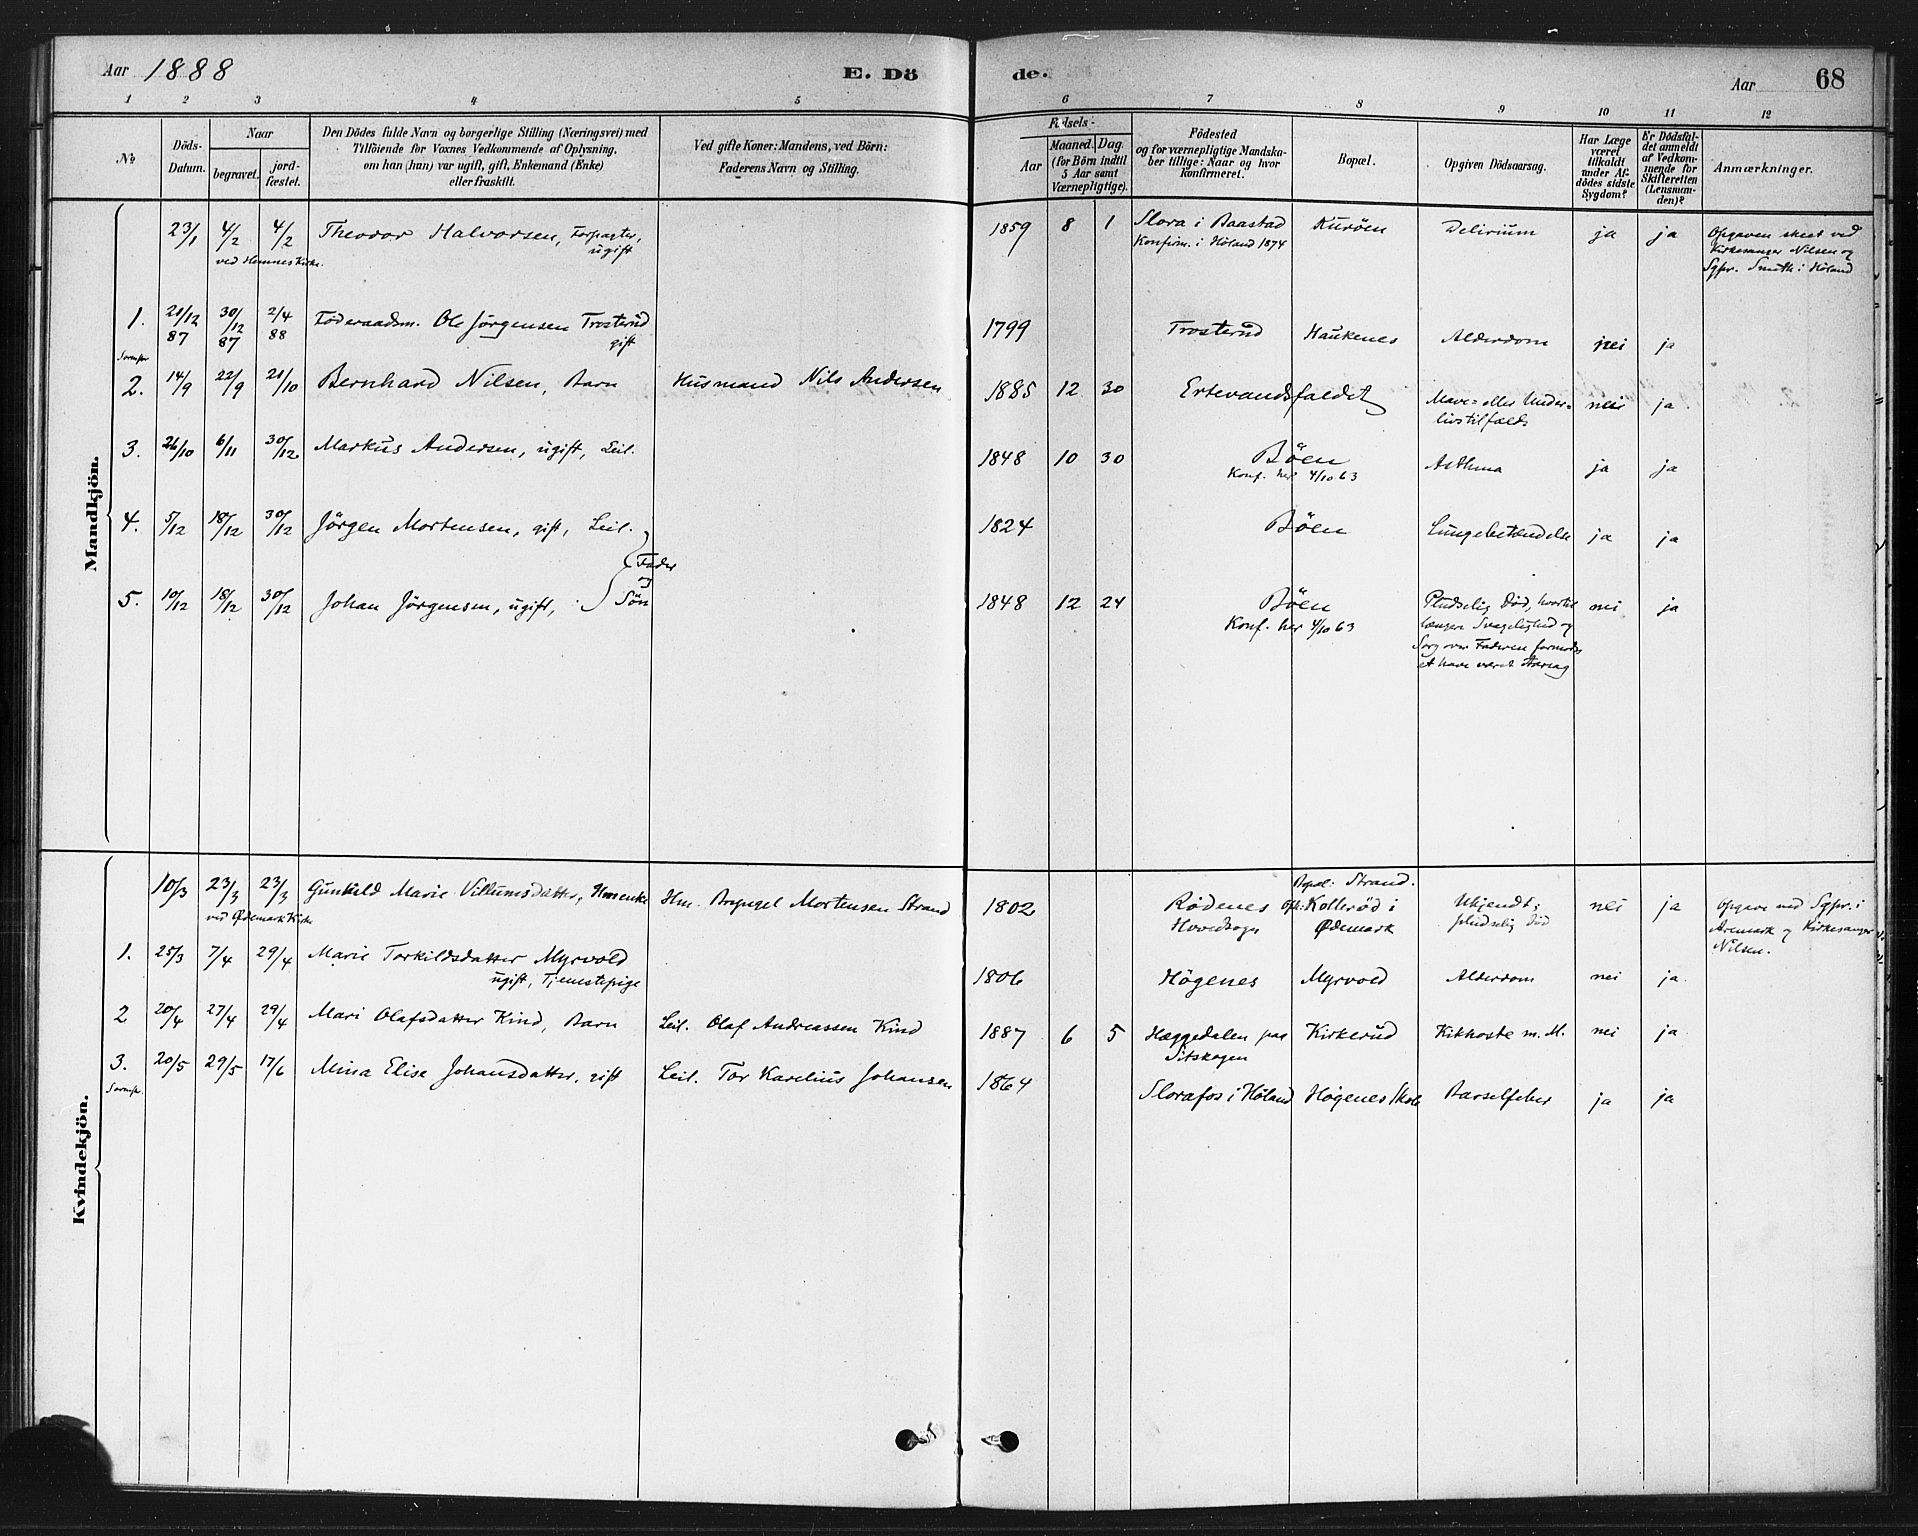 Aar 1888 E. Dö de. Aar 68
1 2 3 4 5 6 7 8 9 10 11 12
No
Döds-
Datum.
Naar
begravet.
jord-
fæstet.
Den Dödes fulde Navn og borgerlige Stilling (Næringsvei) med
Tilföiende for Voxnes Vedkommende af Oplysning,
om han (hun) var ugift, gift, Enkemand (Enke)
eller fraskilt.
Ved gifte Koner: Mandens, ved Börn:
Faderens Navn og Stilling.
Födsels-
Aar
Maaned. Dag.
(for Börn indtil
5 Aar samt
Værnepligtige).
Födested
og for værnepligtige Mandska-
ber tillige: Naar og hvor
konfirmeret.
Bopæl.
Opgiven Dödsaarsag.
Har Læge
været
tilkaldt
under Af-
dödes sidste
Sygdom?
Er Dödsfal-
det anmeldt
af Vedkom-
mende for
Skifteretten
(Lensman-
den)?
Anmærkninger.
Mandkjön.
23/1 4/2 4/2 Theodor Halvorsen, Forpagter, 1859 8 1 Slora i Baastad Kuröen Delirium ja ja Opgaven skeet ved
ved Hemnes Kirke. ugift Konfirm. i Höland 1874 Kirkesanger Nilsen og
Sgpr. Smith i Höland
1. 21/12 87 30/12 87 2/4 88 Föderaadsm. Ole Jörgensen Trosterud 1799 Trosterud Haukenes Alderdom nei ja
gift
2. 14/9 22/9 21/10 Bernhard Nilsen, Barn Husmand Nils Andersen 1885 12 30 Ertevandsfaldet Mave- eller Under- nei ja
livstilfælde
3. 26/10 6/11 30/12 Markus Andersen, ugift, Leil. 1848 10 30 Böen Asthma ja ja
Konf. her 4/10 63
4. 5/12 18/12 30/12 Jörgen Mortensen, gift, Leil. 1824 Böen Lungebetændelse ja ja
Fader
og
5. 10/12 18/12 30/12 Johan Jörgensen, ugift, Sön 1848 12 24 Böen Pludselig Död, hvortil nei ja
Konf. her 4/10 63 længere Svagelighed og
Sorg over Faderen formodes
at have været Aarsag
Kvindekjön.
10/3 23/3 23/3 Gunhild Marie Villumsdatter, Husenke Hm. Mortensen Strand 1802 Rödenes Kollerød i Ukjendt; nei ja Opgave ved Sgpr. i
Bopæl: Strand.
ved Ødemark Kirke Ødemark pludselig Död Aremark og Kirkesanger
Nilsen.
1. 25/3 7/4 29/4 Marie Torkildsdatter Myrvold 1806 Högenes Myrvold Alderdom nei ja
ugift, Tjenestepige
2 20/4 27/4 29/4 Mari Olafsdatter Kind, Barn Leil. Olaf Andreassen Kind 1887 6 5 Hæggedalen paa Kirkerud Kikhoste m. M. nei ja
Sitskogen
3. 20/5 29/5 17/6 Mina Elise Johansdatter, gift Leil. Tor Karelius Johansen 1864 Slorafos i Höland Högenes Skole Barselfeber ja ja